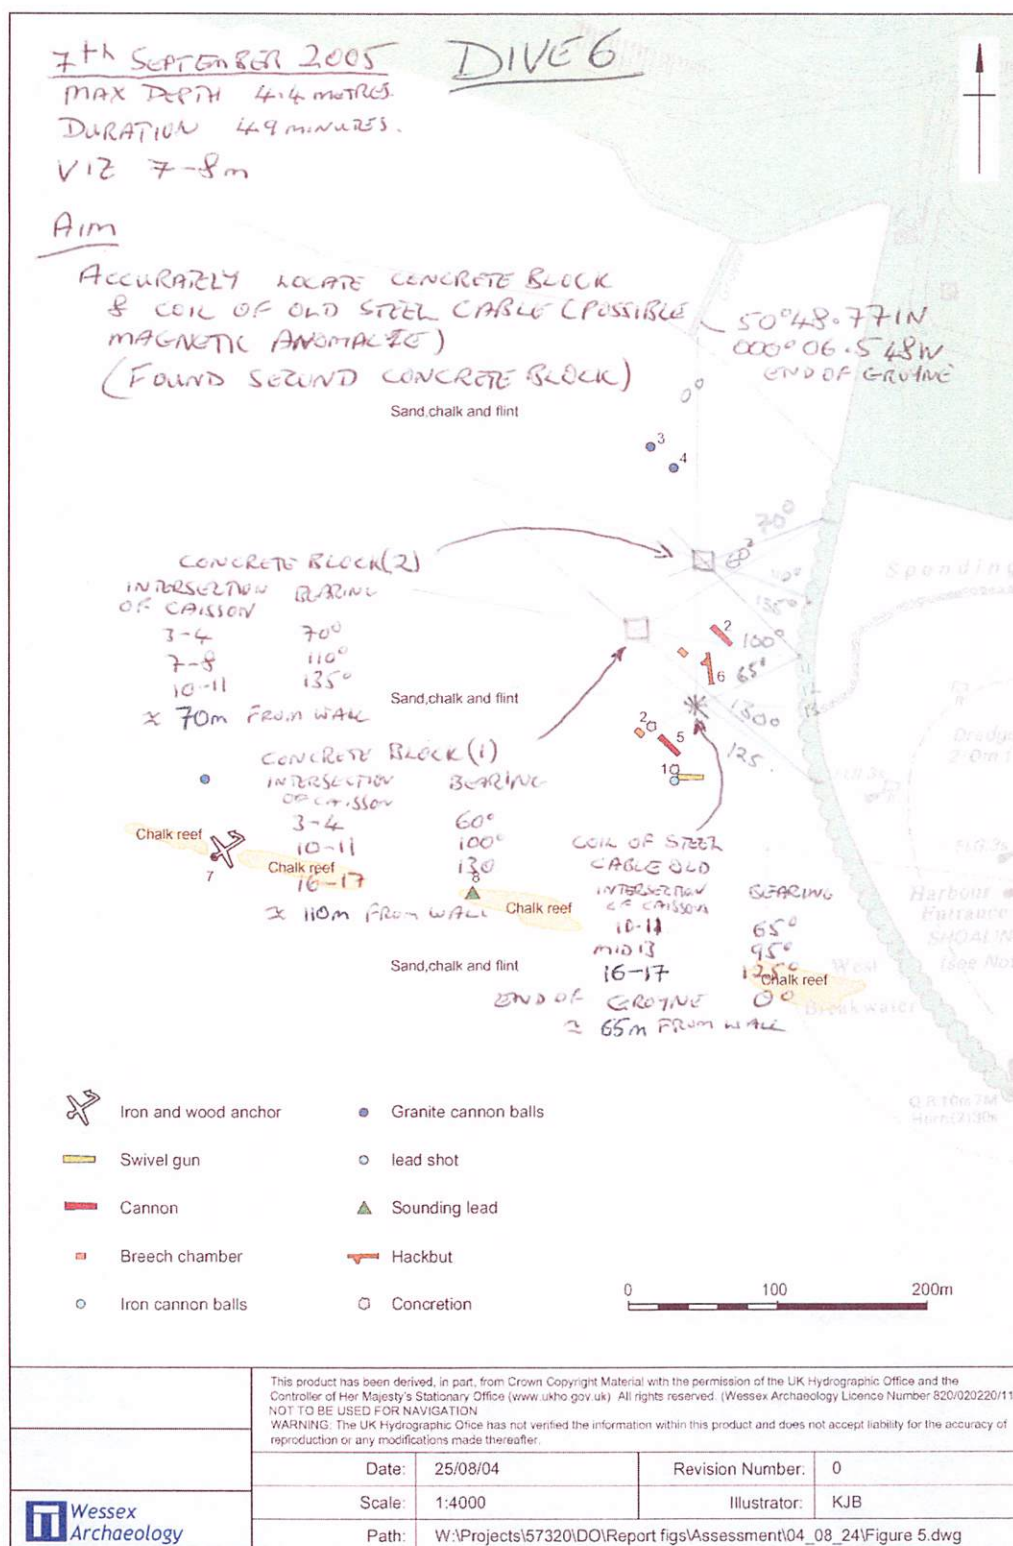 7th SEPTEMBER 2005
DIVE 6
MAX DEPTH 4.4 METRES.
DURATION 49 MINURES.
VIZ 7-8m
AIM
ACCURATELY LOCATE CONCRETE BLOCK
& COIL OF OLD STEEL CABLE (POSSIBLE
MAGNETIC ANOMALIE)
(FOUND SECOND CONCRETE BLOCK)
50°48.771N
000°06.548W
END OF GROYNE
Sand,chalk and flint
0°
3
4
70°
CONCRETE BLOCK(2)
INTERSECTION BEARING
OF CAISSON
3-4 70°
7-8 110°
10-11 135°
≈ 70m FROM WALL
Spending
110°
135°
2
100°
65°
6
130°
125
Sand,chalk and flint
2
5
1
Dredged
2.0m
CONCRETE BLOCK(1)
INTERSECTION BEARING
OF CAISSON
3-4 60°
10-11 100°
16-17 130
≈ 110m FROM WALL
Chalk reef
7
Chalk reef
8
Chalk reef
COIL OF STEEL
CABLE OLD
INTERSECTION BEARING
OF CAISSON
10-11 65°
MID 13 95°
16-17 125°
END OF GROYNE 0°
≈ 65m FROM WALL
Harbour
Entrance
SHOALING
(see Note
Sand,chalk and flint
Chalk reef
West
Breakwater
Iron and wood anchor
Granite cannon balls
Swivel gun
lead shot
Cannon
Sounding lead
Breech chamber
Hackbut
Iron cannon balls
Concretion
0 100 200m
This product has been derived, in part, from Crown Copyright Material with the permission of the UK Hydrographic Office and the
Controller of Her Majesty's Stationary Office (www.ukho.gov.uk) All rights reserved. (Wessex Archaeology Licence Number 820/020220/11
NOT TO BE USED FOR NAVIGATION
WARNING: The UK Hydrographic Ofice has not verified the information within this product and does not accept liability for the accuracy of
reproduction or any modifications made thereafter.
Date: 25/08/04 Revision Number: 0
Scale: 1:4000 Illustrator: KJB
Path: W:\Projects\57320\DO\Report figs\Assessment\04_08_24\Figure 5.dwg
Wessex
Archaeology